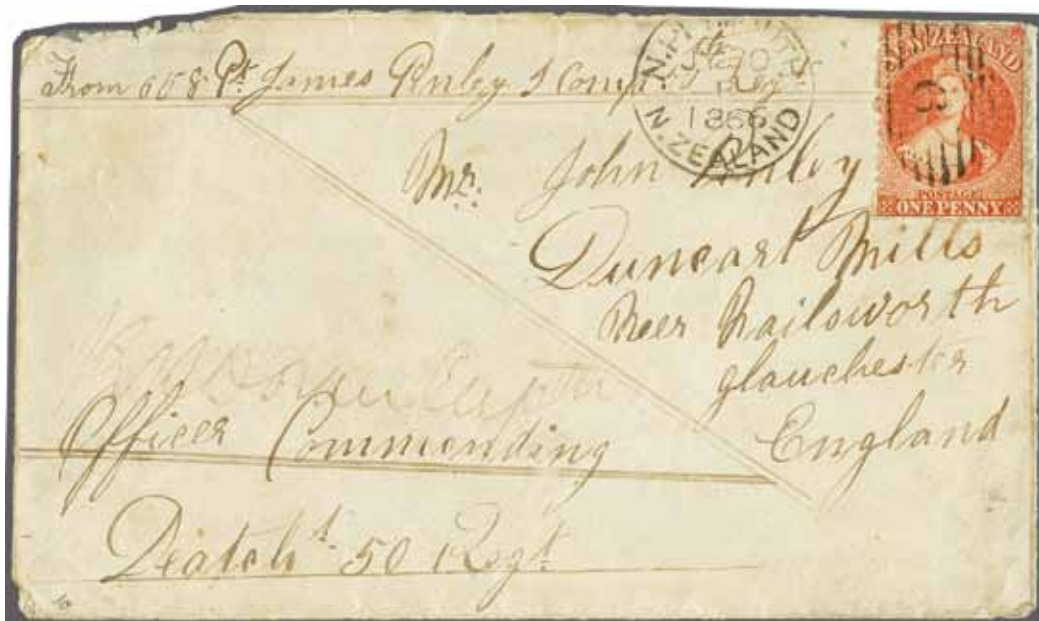 From 658 Pt. James Enley I Comp Regt
N. ZEALAND
1866
NEW ZEALAND
POSTAGE
ONE PENNY
Mr. John Enley
Duncart Mills
Neer Nailsworth
glauchester
England
Officer Commending
Deatcht. 50 Regt.